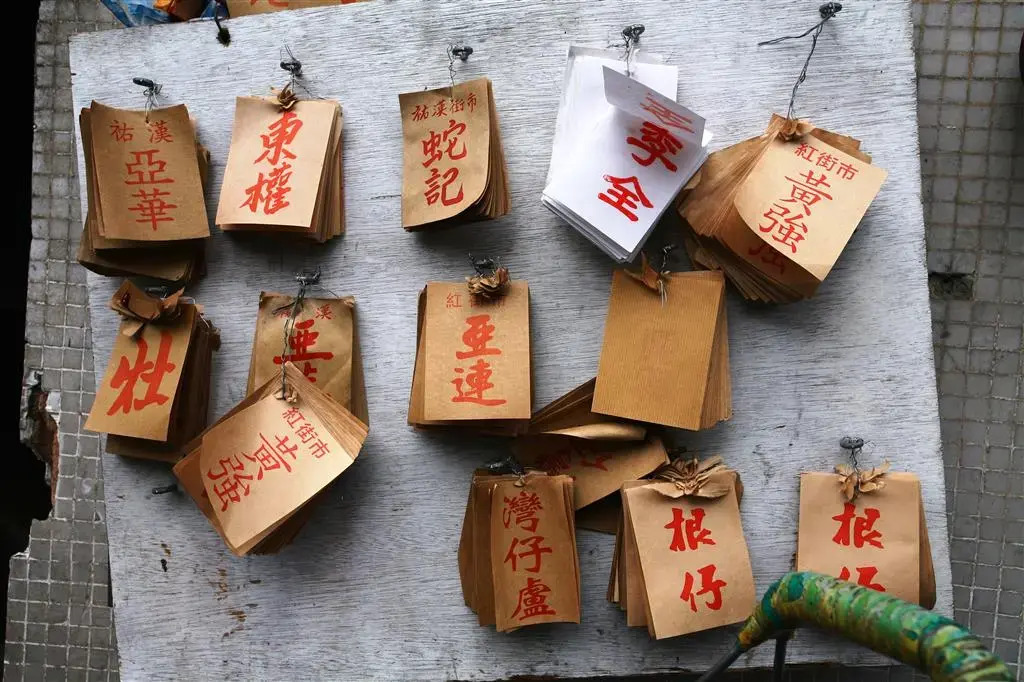 祐漢
亞
華
東
權
祐漢街市
蛇
記
李
全
紅街市
黃
強
牡
祐漢
亞
紅街市
黃
強
紅街市
亞
連
灣
仔
盧
根
仔
根
仔